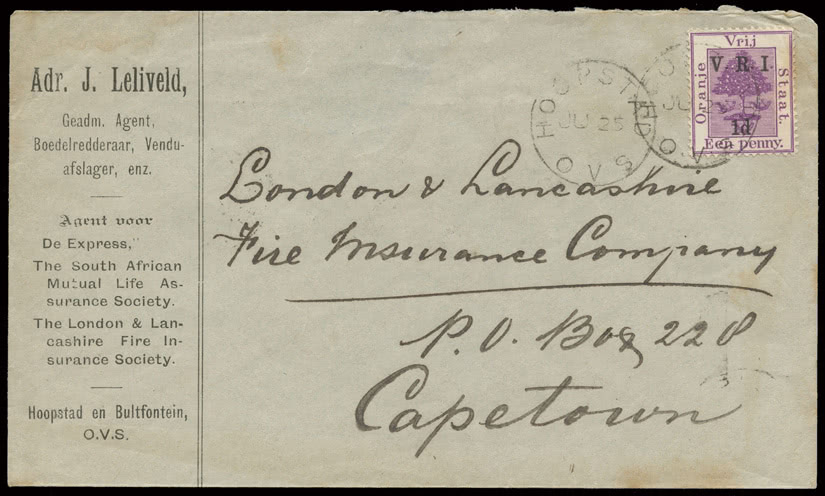 Adr. J. Leliveld,
Geadm. Agent,
Boedelredderaar, Vendu-
afslager, enz.
Agent voor
De Express,"
The South African
Mutual Life As-
surance Society.
The London & Lan-
cashire Fire In-
surance Society.
Hoopstad en Bultfontein,
O.V.S.
HOOPSTAD
JU 25
O V S
Oranje Vrij Staat.
V R I.
1d
Een penny.
London & Lancashire
Fire Insurance Company
P.O. Box 228
Capetown